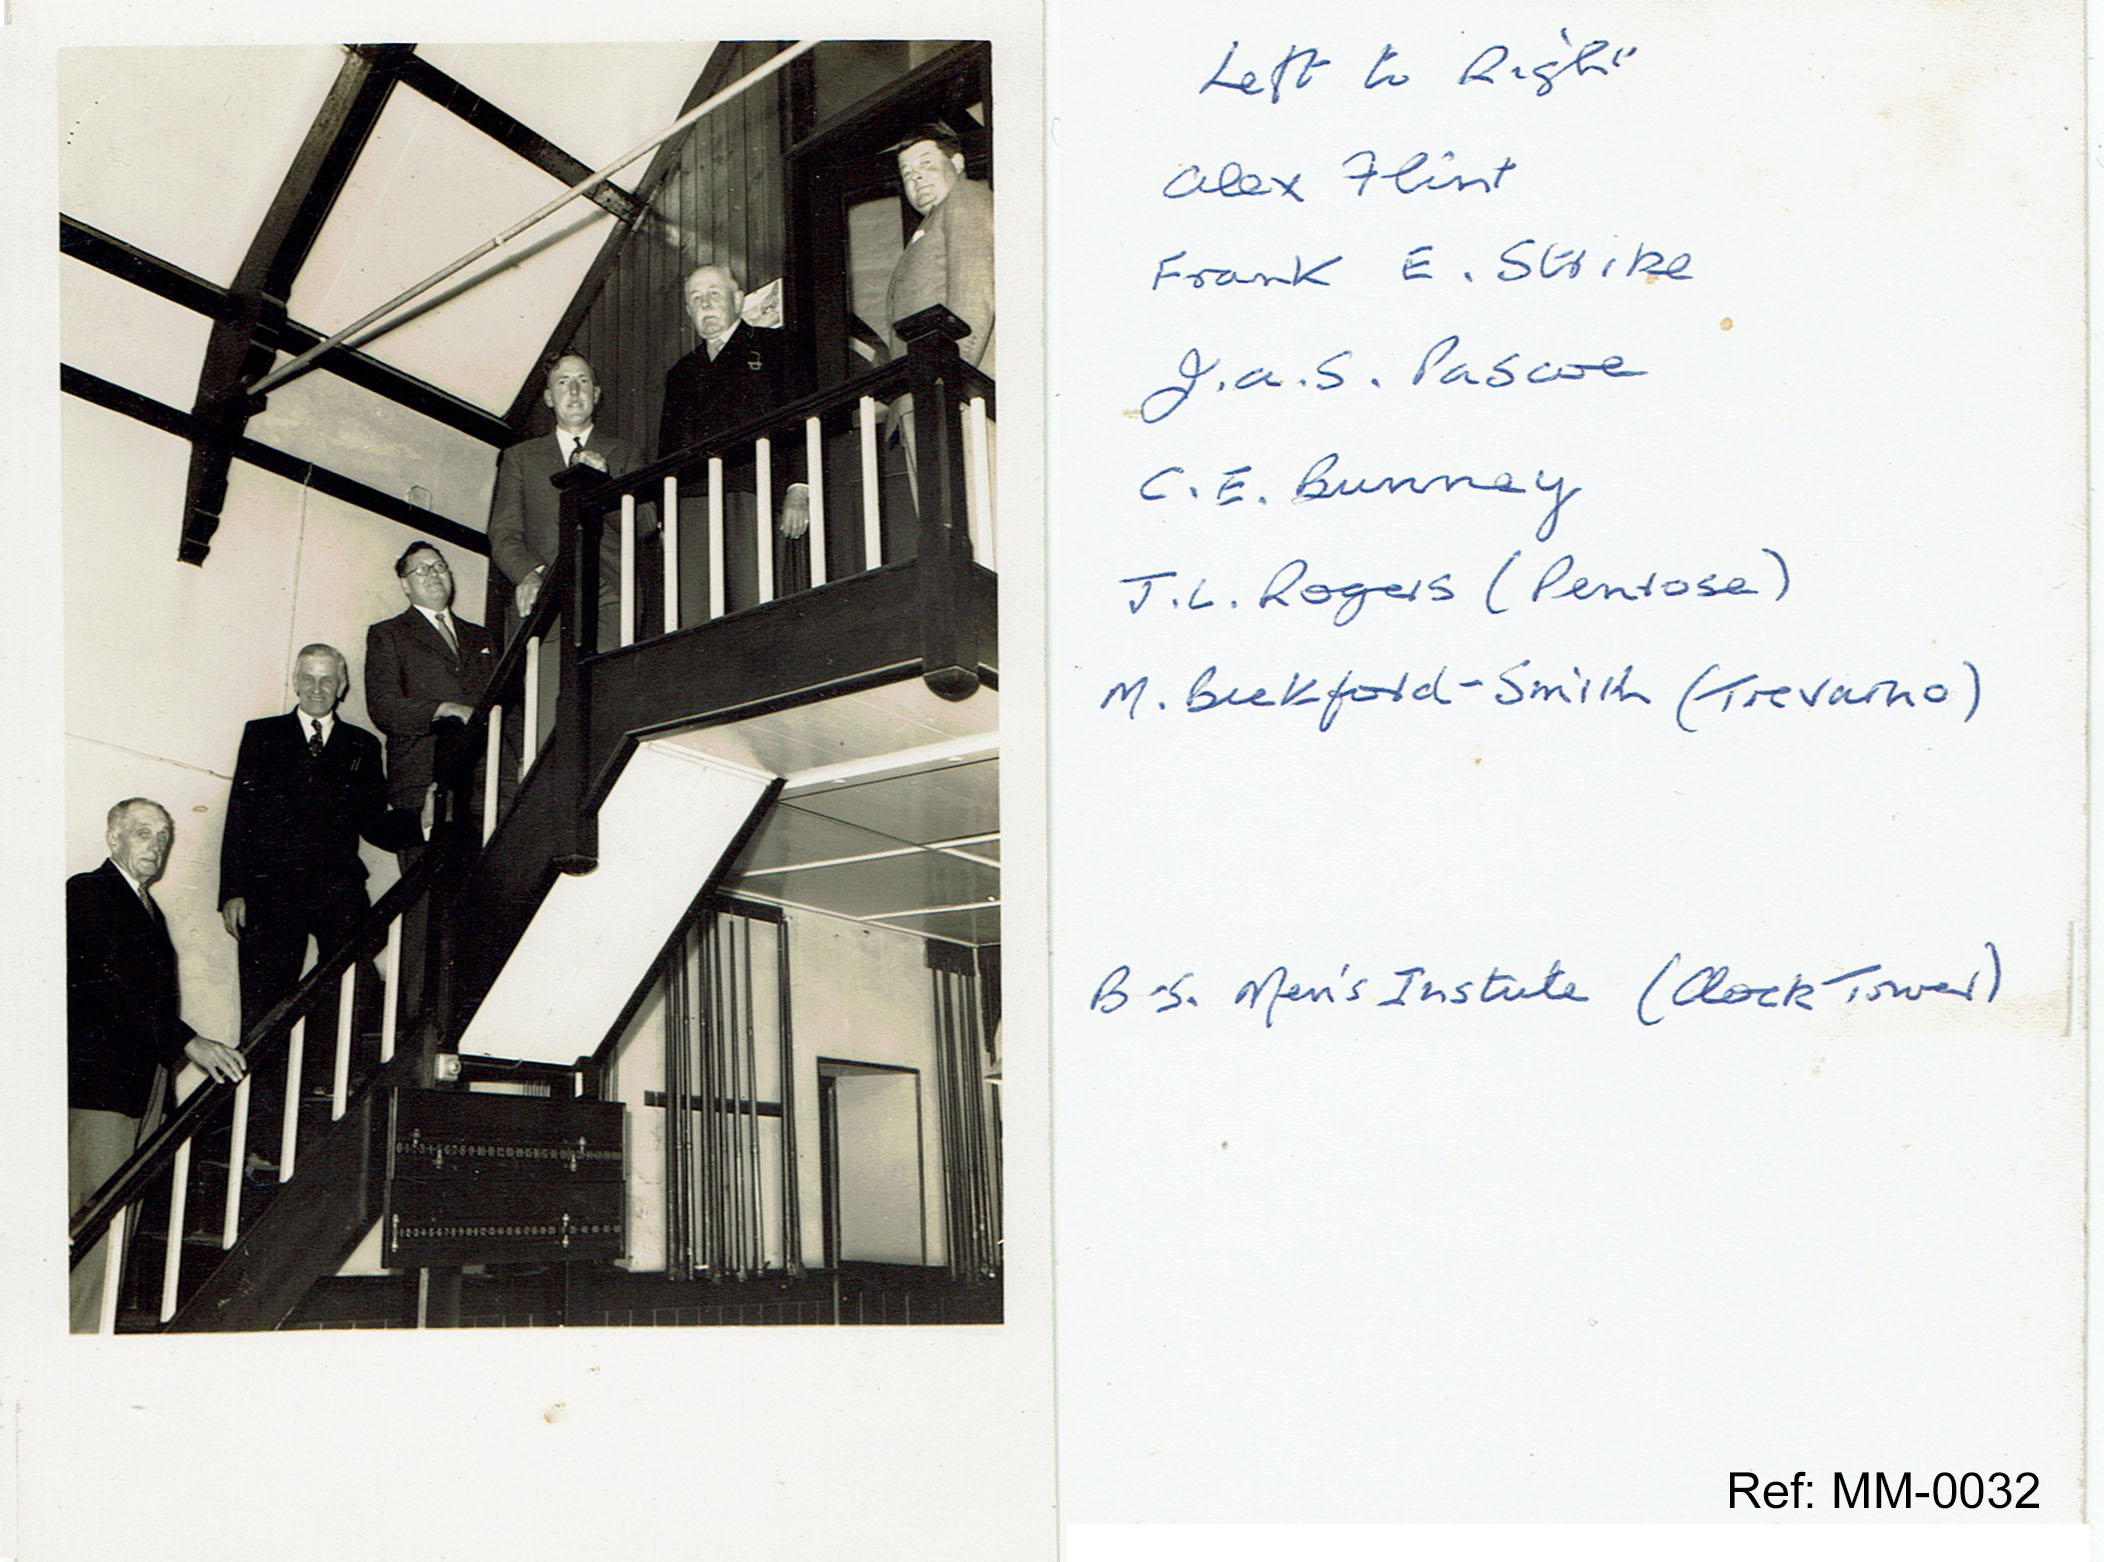 Left to Right
Alex Flint
Frank E. Strike
J.A.S. Pascoe
C.E. Bunney
J.L. Rogers (Penrose)
M. Bickford-Smith (Trevarno)
B-S. Men's Instute (Clock Tower)
Ref: MM-0032